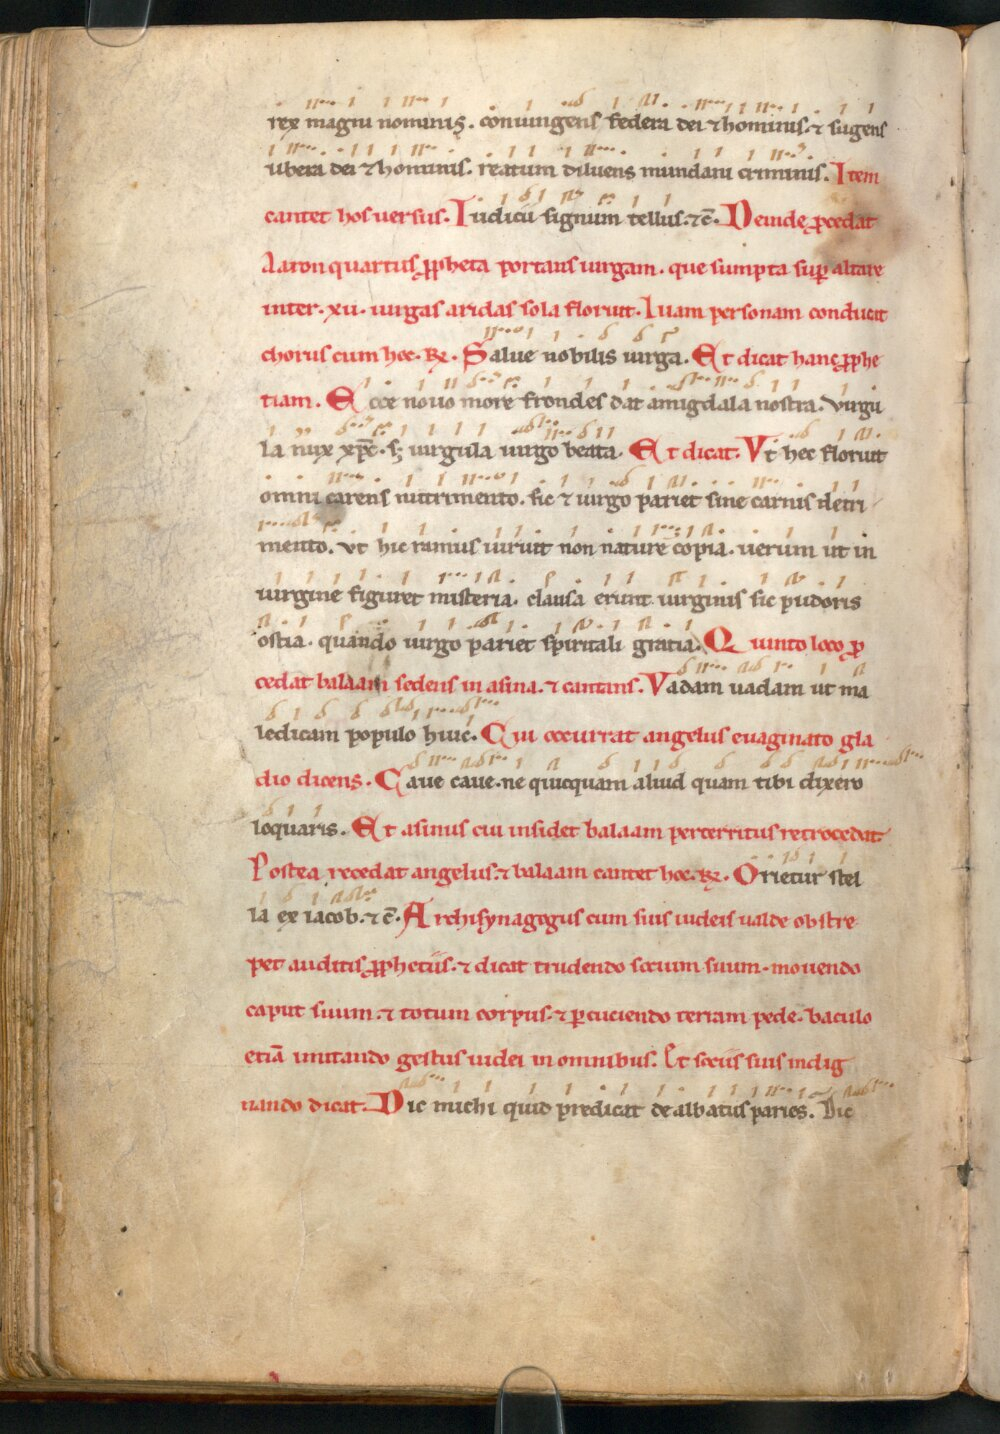 rex magni nominis. coniungens federa dei ⁊ hominis. ⁊ sugens
ubera dei ⁊ hominis. reatum diluens mundani criminis. Item
cantet hos uersus. Iudicii signum tellus. ⁊ c̄. Deinde ꝓcedat
Aaron quartus ꝓpheta portans uirgam. que sumpta sup̱ altare
inter .xii. uirgas aridas sola floruit. Iliam personam conducat
chorus cum hoc .℞. Salue nobilis uirga. Et dicat hanc ꝓphe
tiam. Ecce nouo more frondes dat amigdala nostra. virgu
la nux xp̄c. sꝫ uirgula uirgo beata. Et dicat. Vt hec floruit
omni carens nutrimento. sic ⁊ uirgo pariet sine carnis detri
mento. vt hic ramus uiruit non nature copia. uerum ut in
uirgine figuret misteria. clausa erunt uirginis sic pudoris
ostia. quando uirgo pariet spiritali gratia. Quinto loco ꝓ
cedat balaam sedens in asina. ⁊ cantans. Vadam uadam ut ma
ledicam populo huic. Cui occurrat angelus euaginato gla
dio dicens. Caue caue ne quicquam aliud quam tibi dixero
loquaris. Et asinus cui insidet balaam perterritus retrocedat.
Postea recedat angelus. ⁊ balaam cantet hoc .℞. Orietur stel
la ex iacob. ⁊ c̄. Archisynagogus cum suis iudeis ualde obstre
pet auditis ꝓphetiis. ⁊ dicat trudendo socium suum. mouendo
caput suum. ⁊ totum corpus. ⁊ ꝑcuciendo terram pede. baculo
etiā imitando gestus iudei in omnibus. Et sociis suis indig
nando dicat. Dic michi quid predicat dealbatus paries. Dic